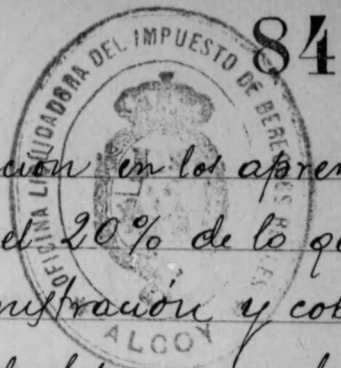 84
OFICINA LIQUIDADORA DEL IMPUESTO DE DERECHOS REALES
ALCOY
ción en los apren
el 20% de lo q
nistración y cob